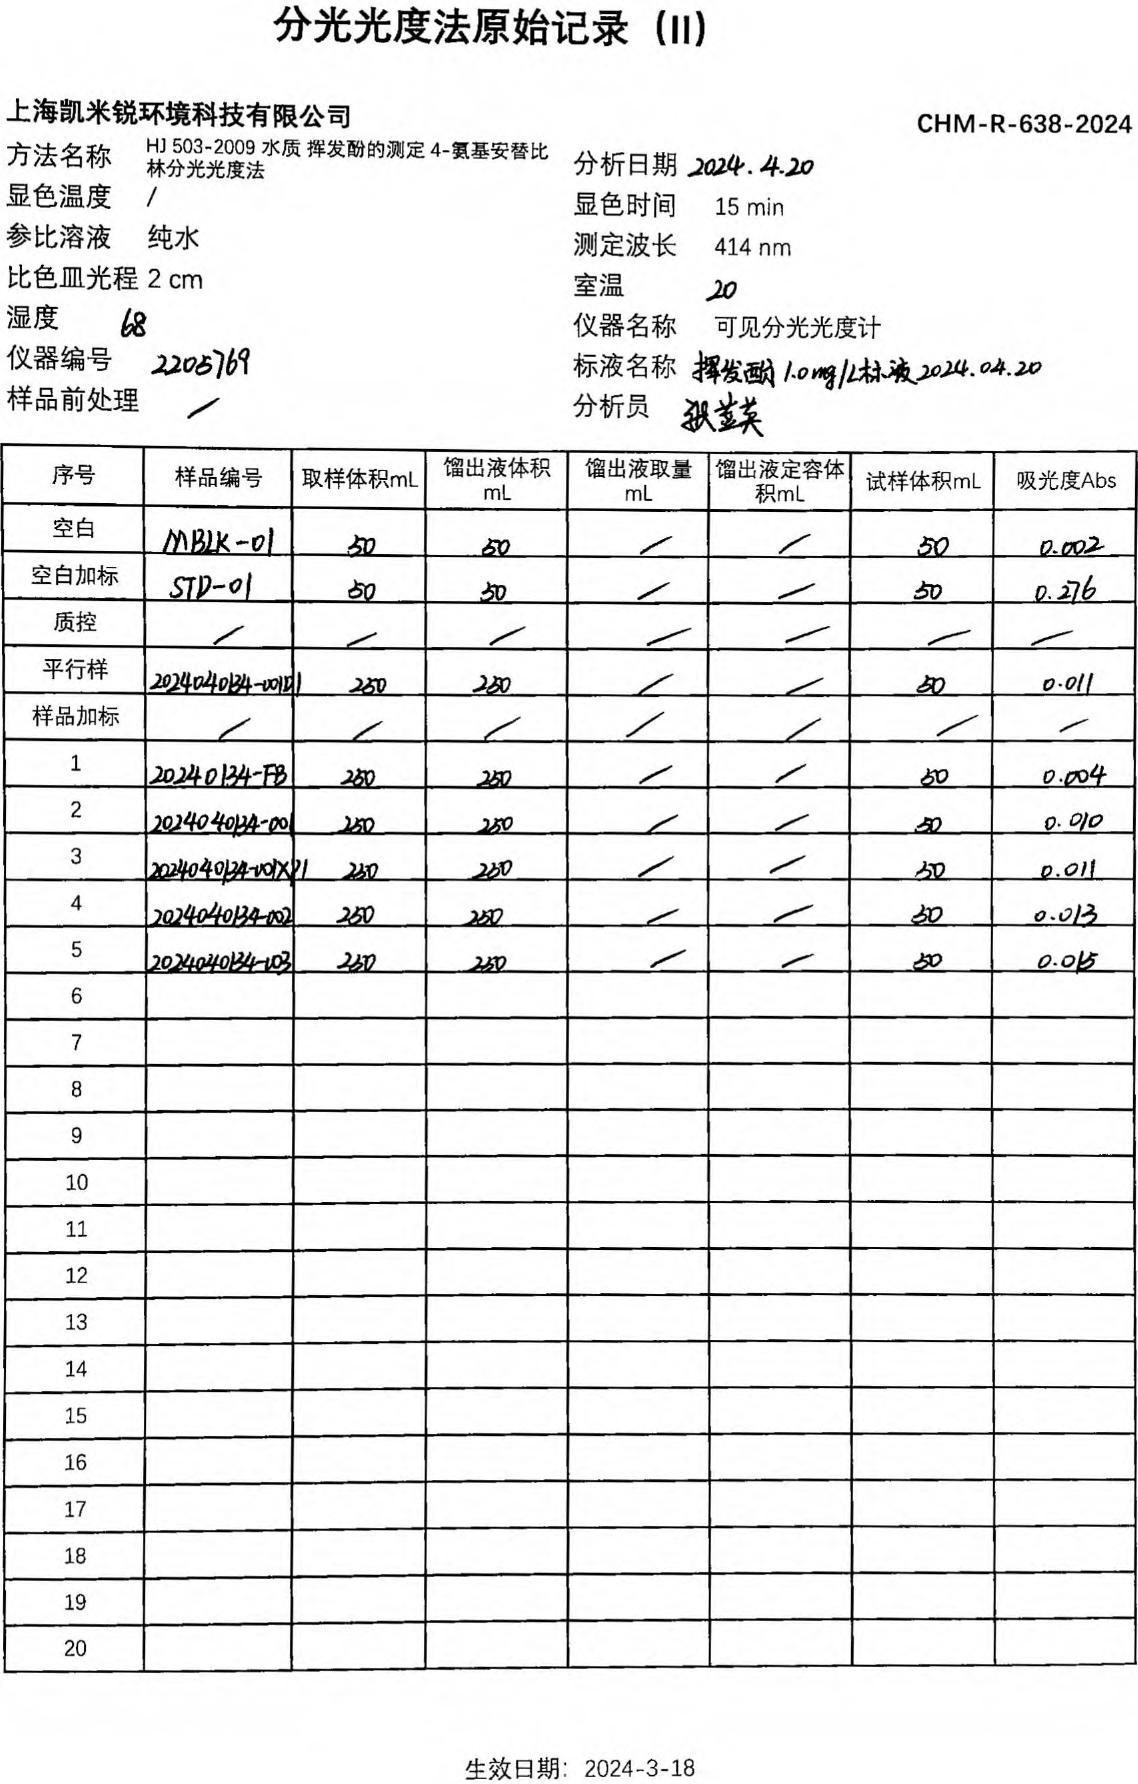 分光光度法原始记录（II）
上海凯米锐环境科技有限公司
CHM-R-638-2024
方法名称 HJ 503-2009 水质 挥发酚的测定 4-氨基安替比林分光光度法
分析日期 2024.4.20
显色温度 /
显色时间 15 min
参比溶液 纯水
测定波长 414 nm
比色皿光程 2 cm
室温 20
湿度 68
仪器名称 可见分光光度计
仪器编号 2205769
标液名称 挥发酚 1.0mg/L标液 2024.04.20
样品前处理 /
分析员
序号 样品编号 取样体积mL 馏出液体积mL 馏出液取量mL 馏出液定容体积mL 试样体积mL 吸光度Abs
空白 MBLK-01 50 50 / / 50 0.002
空白加标 STD-01 50 50 / / 50 0.276
质控 / / / / / / /
平行样 2024040134-001D1 250 250 / / 50 0.011
样品加标 / / / / / / /
1 20240134-FB 250 250 / / 50 0.004
2 2024040134-001 250 250 / / 50 0.010
3 2024040134-001XP1 250 250 / / 50 0.011
4 2024040134-002 250 250 / / 50 0.013
5 2024040134-003 250 250 / / 50 0.015
6
7
8
9
10
11
12
13
14
15
16
17
18
19
20
生效日期：2024-3-18